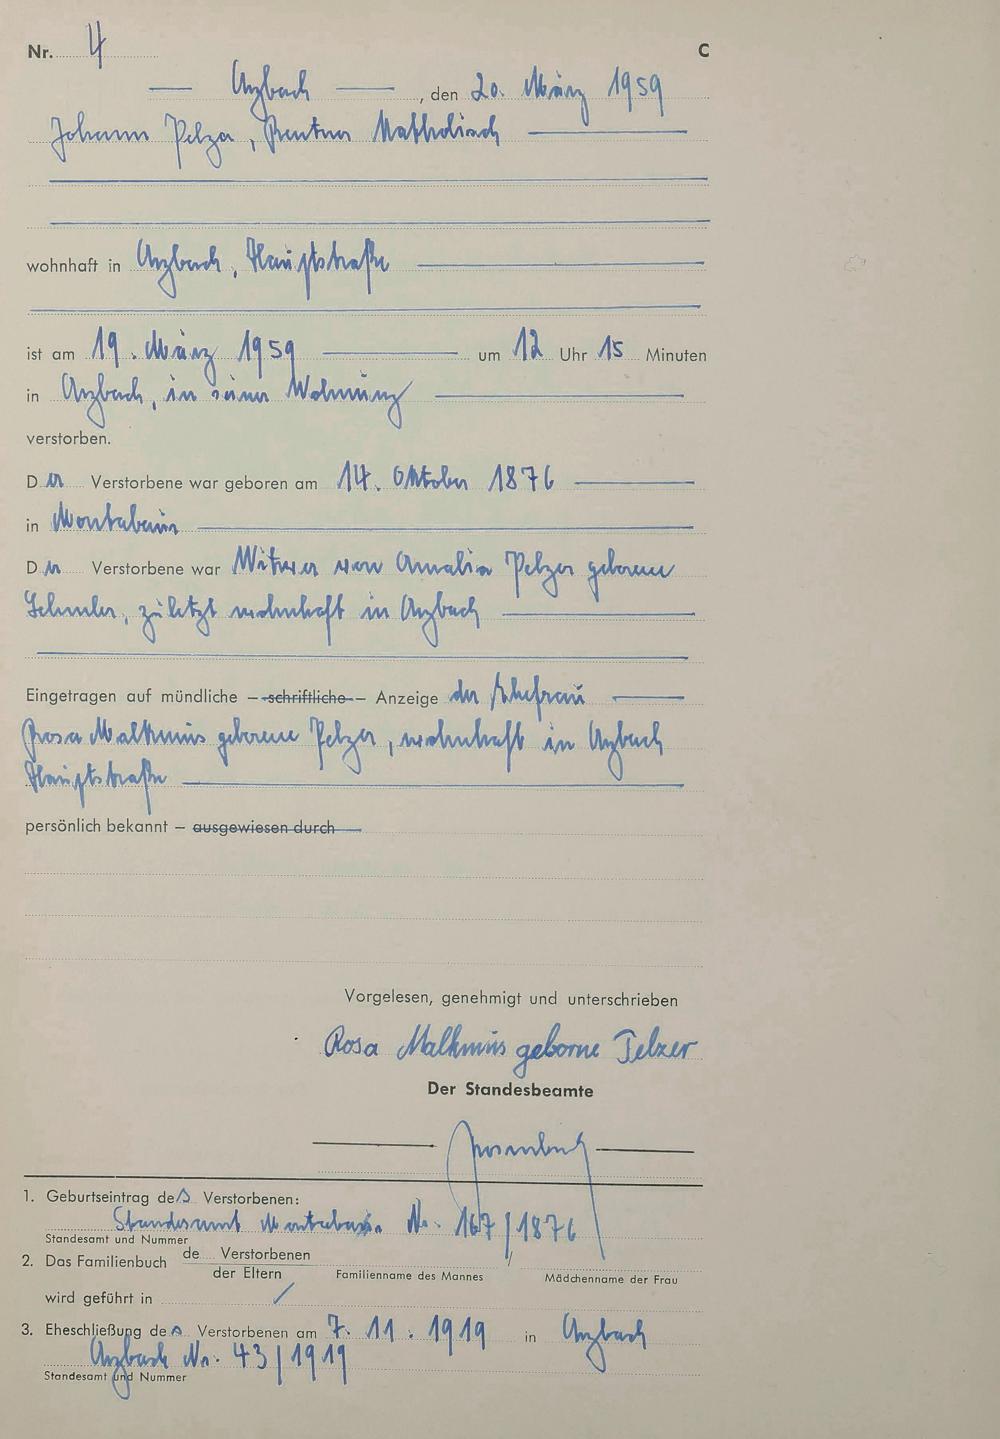 Nr. 4 C
— Arzbach —, den 20. März 1959
Johann Pelzer, Rentner katholisch —
wohnhaft in Arzbach, Hauptstraße —
ist am 19. März 1959 — um 12 Uhr 15 Minuten
in Arzbach, in seiner Wohnung —
verstorben.
Der Verstorbene war geboren am 14. Oktober 1876 —
in Montabaur —
Der Verstorbene war Witwer von Amalia Pelzer geborene
zuletzt wohnhaft in Arzbach —
Eingetragen auf mündliche – schriftliche – Anzeige der Ehefrau —
Rosa Malkmus geborene Pelzer, wohnhaft in Arzbach
Hauptstraße —
persönlich bekannt – ausgewiesen durch
Vorgelesen, genehmigt und unterschrieben
Rosa Malkmus geborne Pelzer
Der Standesbeamte
1. Geburtseintrag des Verstorbenen:
Standesamt Montabaur Nr. 167/1876
Standesamt und Nummer
2. Das Familienbuch de Verstorbenen
der Eltern Familienname des Mannes / Mädchenname der Frau
wird geführt in
3. Eheschließung des Verstorbenen am 7. 11. 1919 in Arzbach
Arzbach Nr. 43/1919
Standesamt und Nummer